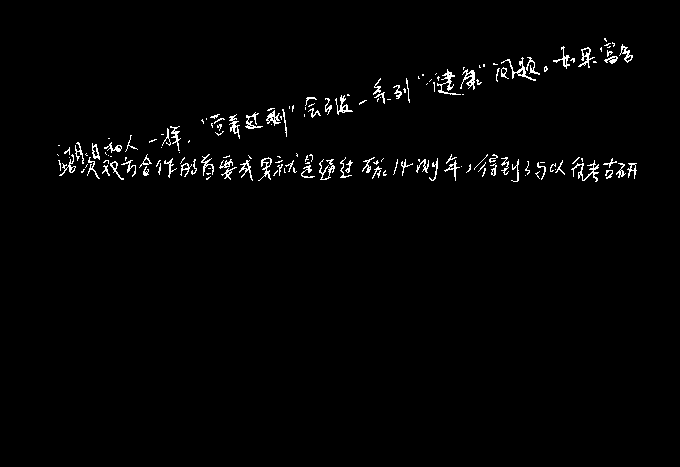 湖泊和人一样，“营养过剩”会引发一系列“健康”问题。如果富含
次双方合作的首要成果就是通过碳14测年，得到了与以往考古研